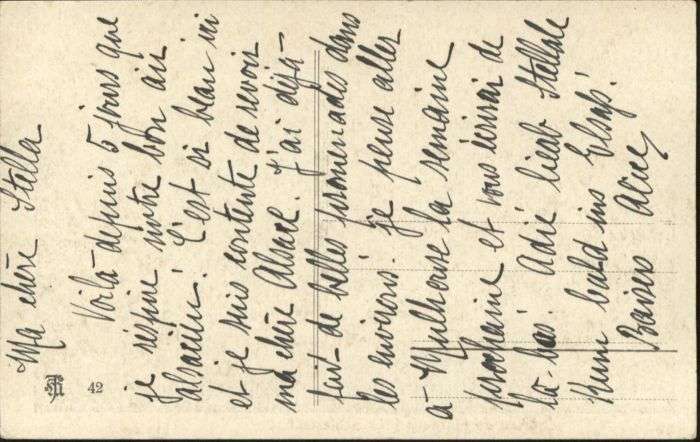 Ma chère Stella
Voilà depuis 5 jours que
je respire notre bon air
alsacien! C'est si beau ici
et je suis contente de revoir
ma chère Alsace. J'ai déjà
fait de belles promenades dans
les environs. je pense aller
à Mulhouse la semaine
prochaine et vous écrirai de
là-bas! Adié lieb Stellale
Kum bald ins Elsaß!
Baisers Alice
42